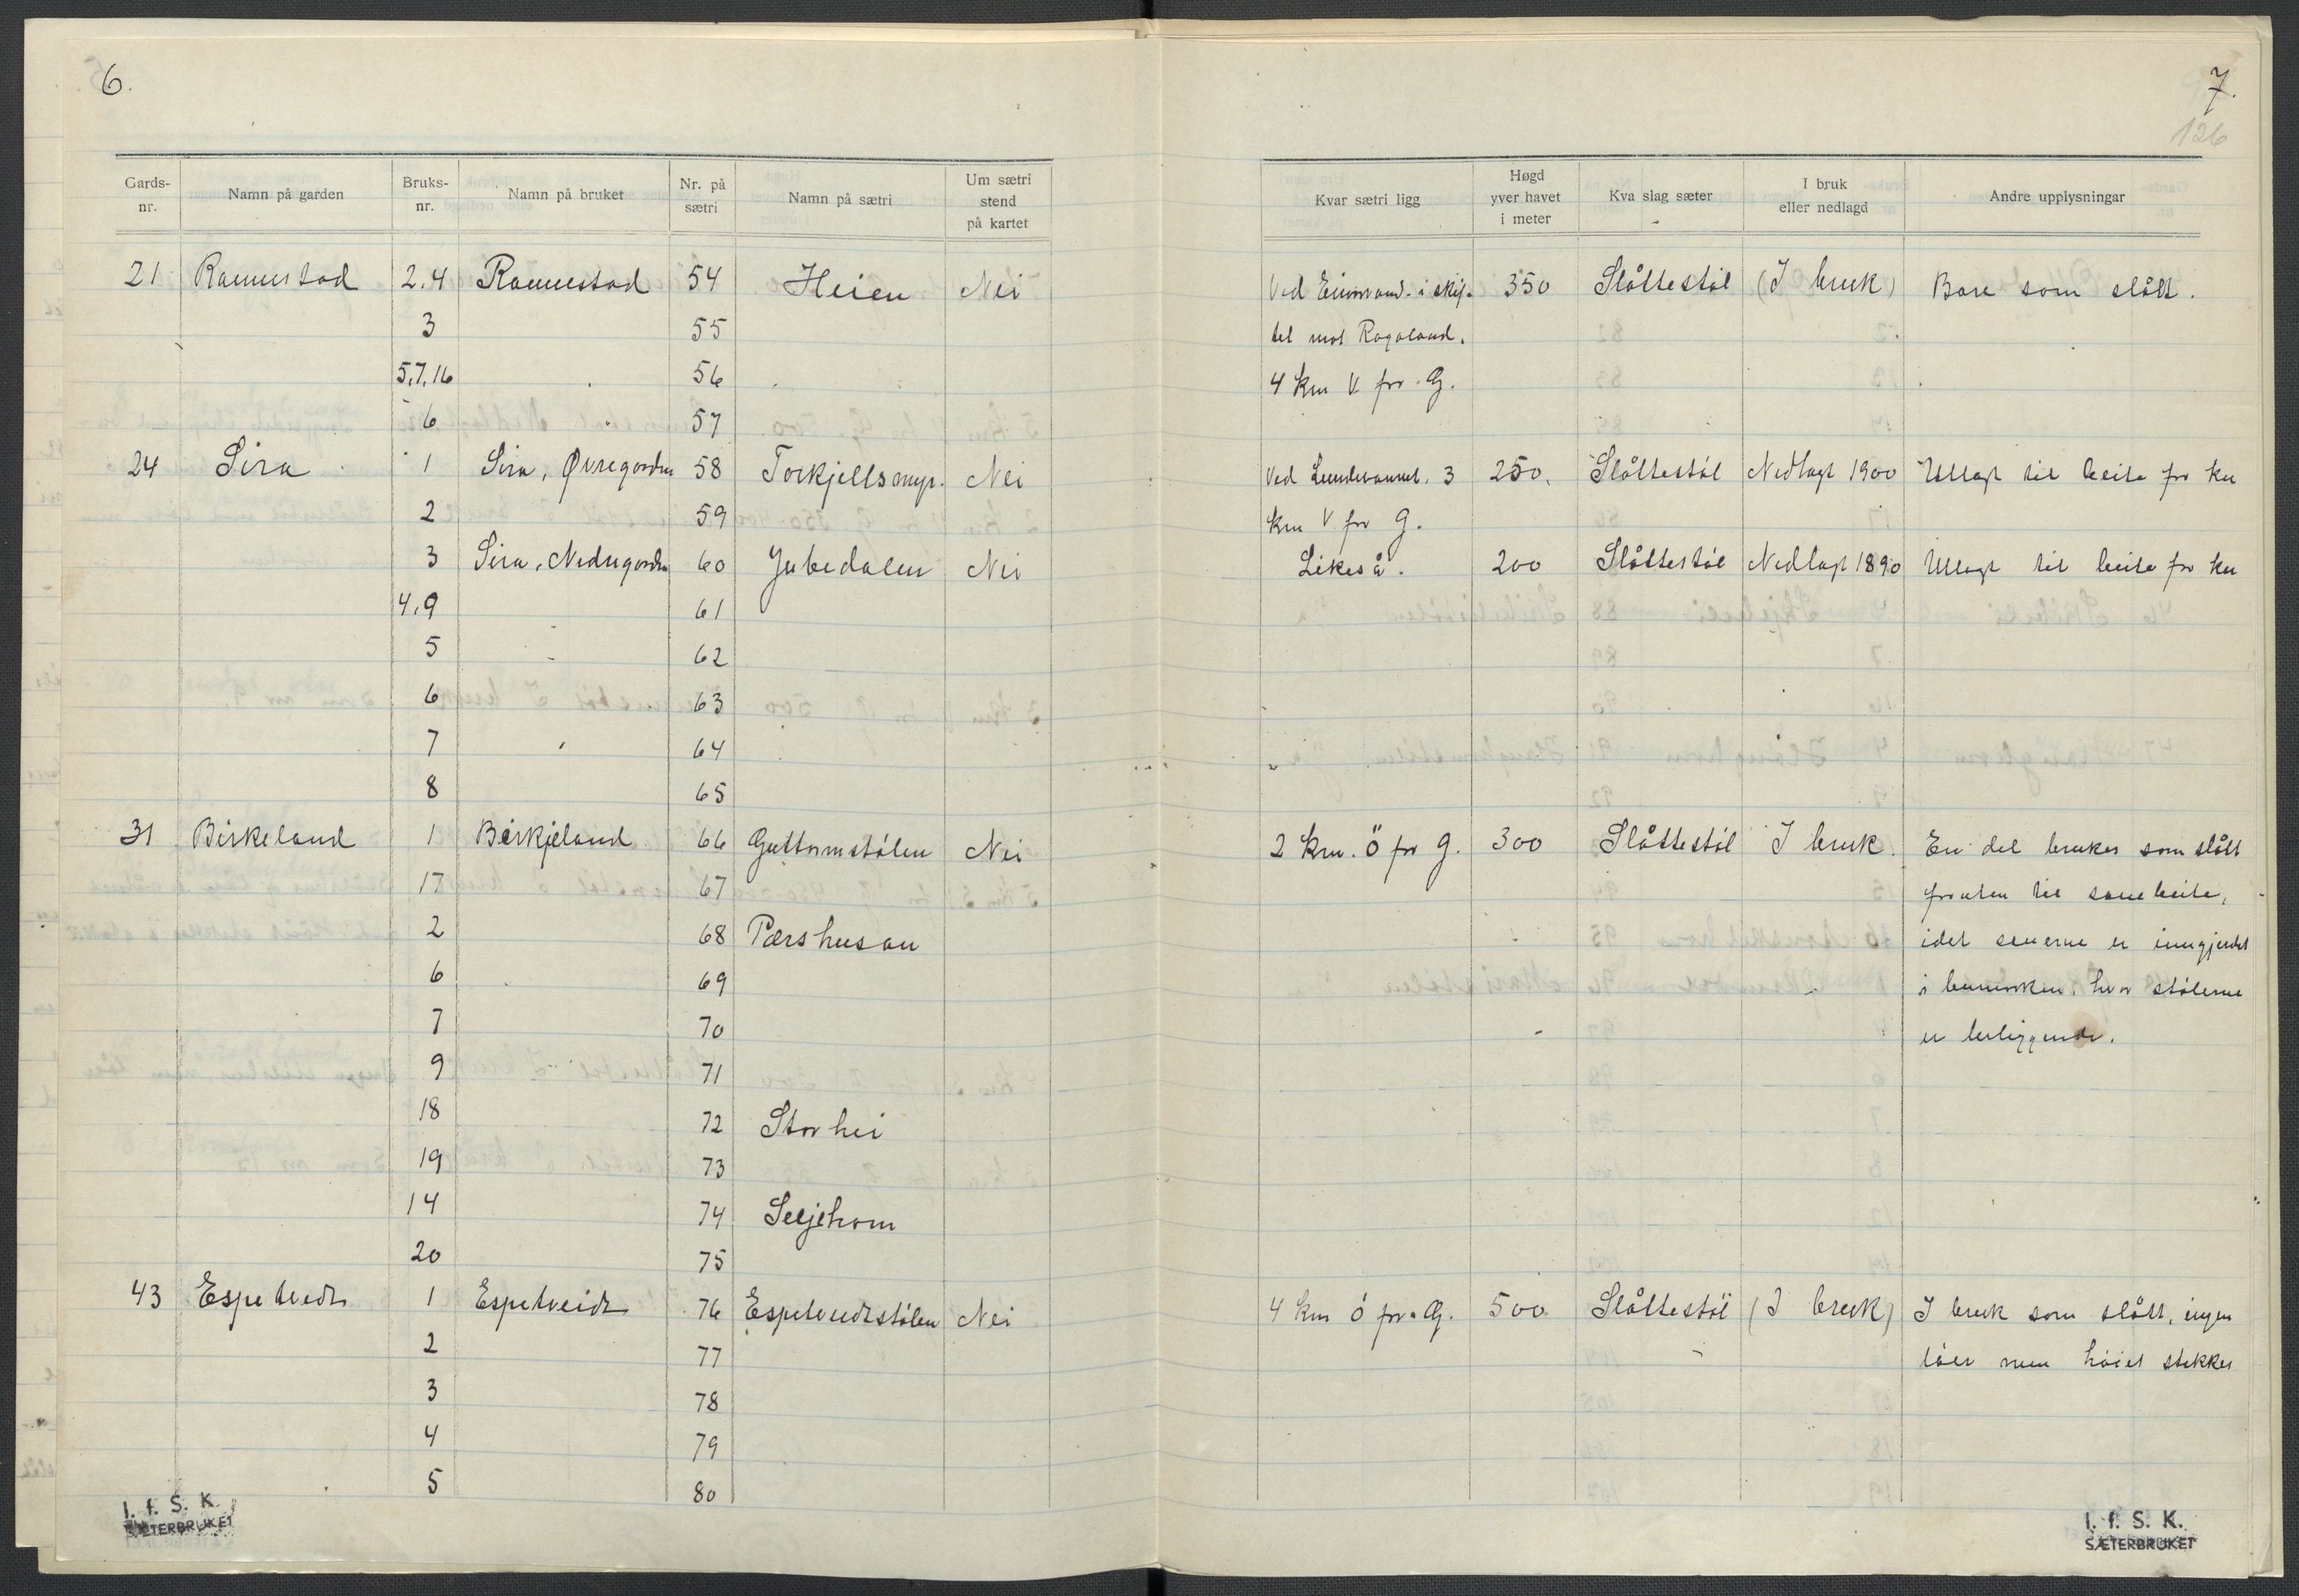 6.
Gards-nr. Namn på garden Bruks-nr. Namn på bruket Nr. på sætri Namn på sætri Um sætri stend på kartet
21 Ramnestad 2.4 Ramnestad 54 Heien Nei
3 55
5,7,16 56
6 57
24 Sira 1 Sira, Øvregorden 58 Torkjellsmyr. Nei
2 59
3 Sira, Nedregorden 60 Jubedalen Nei
4,9 61
5 62
6 63
7 64
8 65
31 Birkeland 1 Birkjeland 66 Guttormstölen Nei
17 67
2 68 Pærshusan
6 69
7 70
9 71
18 72 Storhei
19 73
14 74 Seljehom
20 75
43 Espetvedt 1 Espetveidt 76 Espetvedtstölen Nei
2 77
3 78
4 79
5 80
I. f. S. K.
SÆTERBRUKET
7.
126
Kvar sætri ligg Høgd yver havet i meter Kva slag sæter I bruk eller nedlagd Andre upplysningar
Ved i skif- 350 Slåttestöl (I bruk) Bare som slått.
tet mot Rogaland.
4 km V for G.
Ved Lundevannet. 3 250. Slåttestöl Nedlagt 1900 Utlagt til beite for ku
km V for G.
Likeså. 200 Slåttestöl Nedlagt 1890 Utlagt til beite for ku
2 km. Ö for G. 300 Slåttestöl I bruk. En del brukes som slått
foruten til sauebeite,
idet sauerne er inngjerdet
i heimarken, hvor stölerne
er beliggende.
4 km Ö for G. 500 Slåttestöl (I bruk) I bruk som slått, ingen
löer men höiet stakkes
I. f. S. K.
SÆTERBRUKET